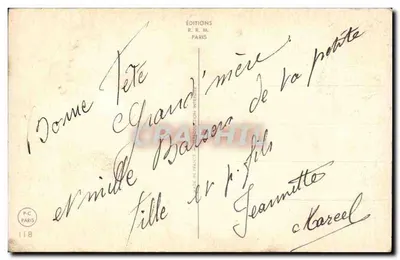 EDITIONS
R. R. M.
PARIS
Bonne Fête
Grand'mère
et mille Baisers de ta petite
fille et p. fils
Jeannette
Marcel
P-C
PARIS
118
CPAPHIL